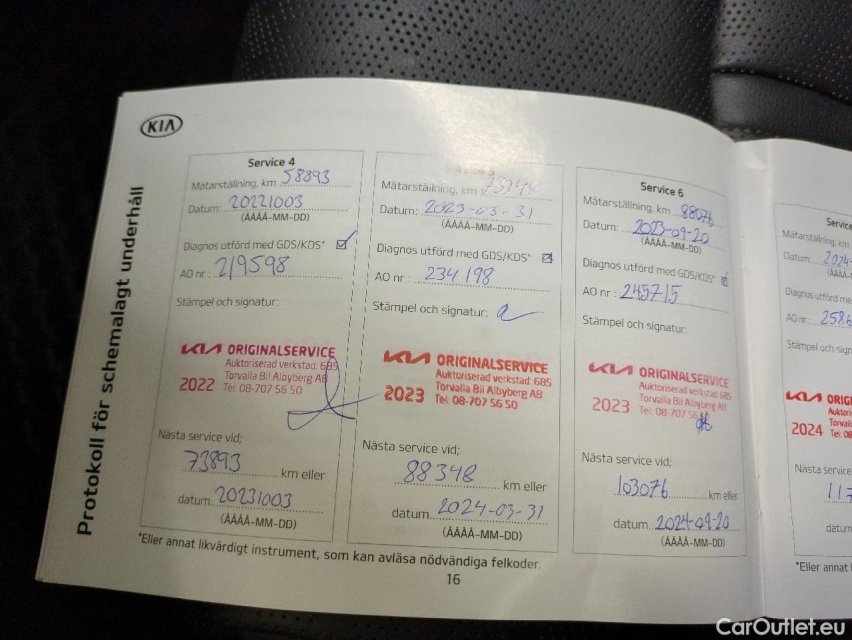 KIA
Protokoll för schemalagt underhåll
Service 4
Mätarställning, km 58893
Datum: 20221003
(ÅÅÅÅ-MM-DD)
Diagnos utförd med GDS/KDS*
AO nr : 219598
Stämpel och signatur:
KIA ORIGINALSERVICE
Auktoriserad verkstad: 685
Torvalla Bil Albyberg AB
2022 Tel: 08-707 56 50
Nästa service vid;
73893 km eller
datum 20231003
(ÅÅÅÅ-MM-DD)
Mätarställning, km
Datum: 2023-03-31
(ÅÅÅÅ-MM-DD)
Diagnos utförd med GDS/KDS*
AO nr : 234198
Stämpel och signatur:
KIA ORIGINALSERVICE
Auktoriserad verkstad: 685
Torvalla Bil Albyberg AB
2023 Tel: 08-707 56 50
Nästa service vid;
88348 km eller
datum 2024-03-31
(ÅÅÅÅ-MM-DD)
Service 6
Mätarställning, km 88076
Datum: 2023-09-20
(ÅÅÅÅ-MM-DD)
Diagnos utförd med GDS/KDS*
AO nr : 245715
Stämpel och signatur:
KIA ORIGINALSERVICE
Auktoriserad verkstad: 685
Torvalla Bil Albyberg AB
2023 Tel: 08-707 56
Nästa service vid;
103076 km eller
datum 2024-09-20
(ÅÅÅÅ-MM-DD)
*Eller annat likvärdigt instrument, som kan avläsa nödvändiga felkoder.
16
Service
Mätarställning, km
Datum: 2024-
Diagnos utförd me
AO nr : 2586
Stämpel och sign
KIA ORIG
2024
Nästa service
117
datum
*Eller annat l
CarOutlet.eu